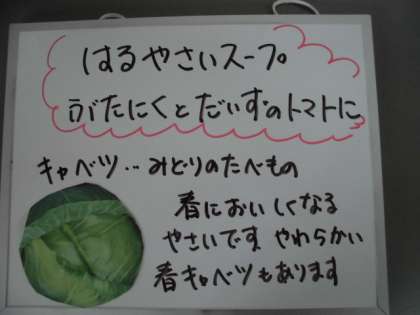 はるやさいスープ
ぶたにくとだいずのトマトに
キャベツ‥みどりのたべもの
春においしくなる
やさいです やわらかい
春キャベツもあります